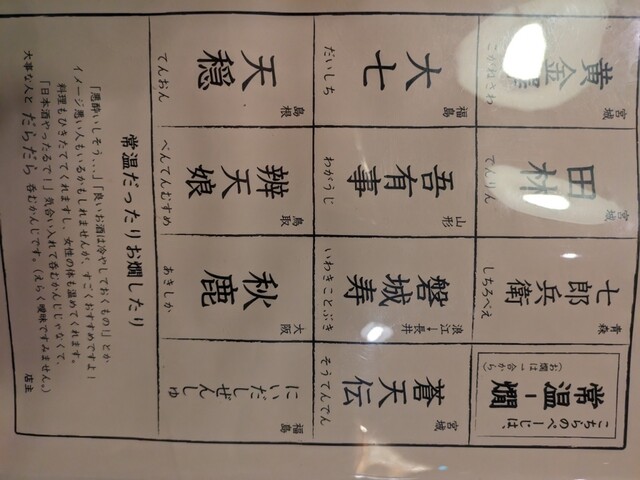 こちらのぺーじは、
常温ー燗
(お燗は一合から)
青森
七郎兵衛
しちろべえ
宮城
田林
でんりん
宮城
黄金澤
こがねさわ
宮城
蒼天伝
そうてんでん
浪江→長井
磐城壽
いわきことぶき
山形
吾有事
わがうじ
福島
大七
だいしち
福島
にいだしぜんしゅ
大阪
秋鹿
あきしか
鳥取
辨天娘
べんてんむすめ
島根
天穏
てんおん
常温だったりお燗したり
「悪酔いしそう...」「良いお酒は冷やしておくもの!」とか
イメージ悪い人もいるかもしれませんが、すごくおすすめですよ!
料理もひきたててくれますし、女性の体も温めてくれます。
「日本酒やったるで!」気合い入れて呑むかんじじゃなくて、
大事な人と だらだら 呑むかんじです。(えらく曖昧ですみません。)
店主